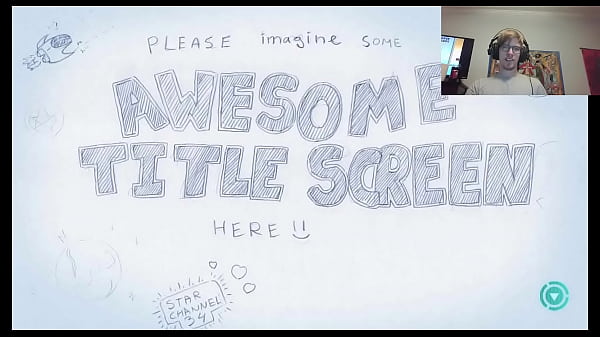 PLEASE imagine SOME
AWESOME
TITLE SCREEN
HERE!!
STAR
CHANNEL
34